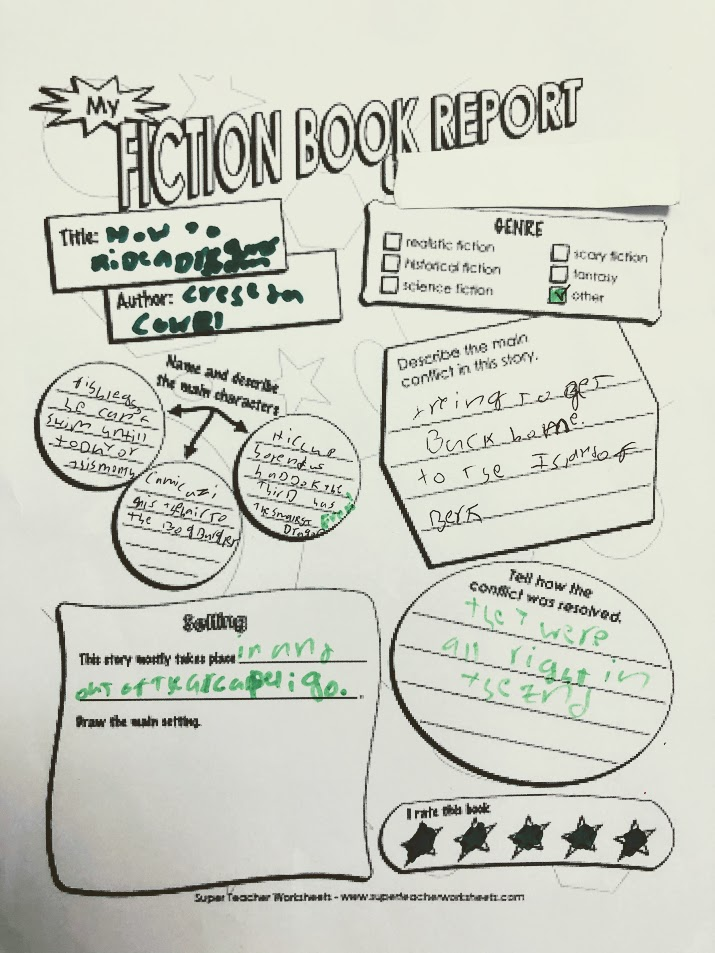 My
FICTION BOOK REPORT
Title: How To
RiDe A DRagons
Author: Cressida
Cowell
GENRE
realistic fiction
historical fiction
science fiction
scary fiction
fantasy
other
Name and describe
the main characters
fishlegs
he can't
swim untill
toDay or
this
Camicazi
the Bog Burglers
Hiccup
horendus
haDDok the
ThirD has
the smallest
Dragon
Describe the main
conflict in this story.
treing To geT
Back home.
to The Island of
Berk
Setting
This story mostly takes place in and
ouT of The arcapeligo.
Draw the main setting.
Tell how the
conflict was resolved.
they were
all right in
the end
I rate this book
Super Teacher Worksheets - www.superteacherworksheets.com